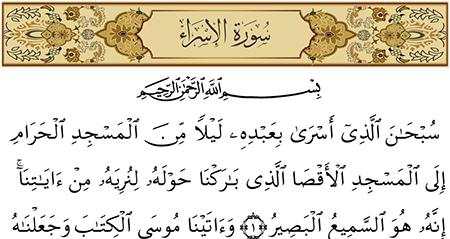 سُورَةُ الإِسْرَاءِ
بِسْمِ اللَّهِ الرَّحْمَٰنِ الرَّحِيمِ
سُبْحَـٰنَ ٱلَّذِىٓ أَسْرَىٰ بِعَبْدِهِۦ لَيْلًا مِّنَ ٱلْمَسْجِدِ ٱلْحَرَامِ
إِلَى ٱلْمَسْجِدِ ٱلْأَقْصَا ٱلَّذِى بَـٰرَكْنَا حَوْلَهُۥ لِنُرِيَهُۥ مِنْ ءَايَـٰتِنَآ ۚ
إِنَّهُۥ هُوَ ٱلسَّمِيعُ ٱلْبَصِيرُ ﴿١﴾ وَءَاتَيْنَا مُوسَى ٱلْكِتَـٰبَ وَجَعَلْنَـٰهُ